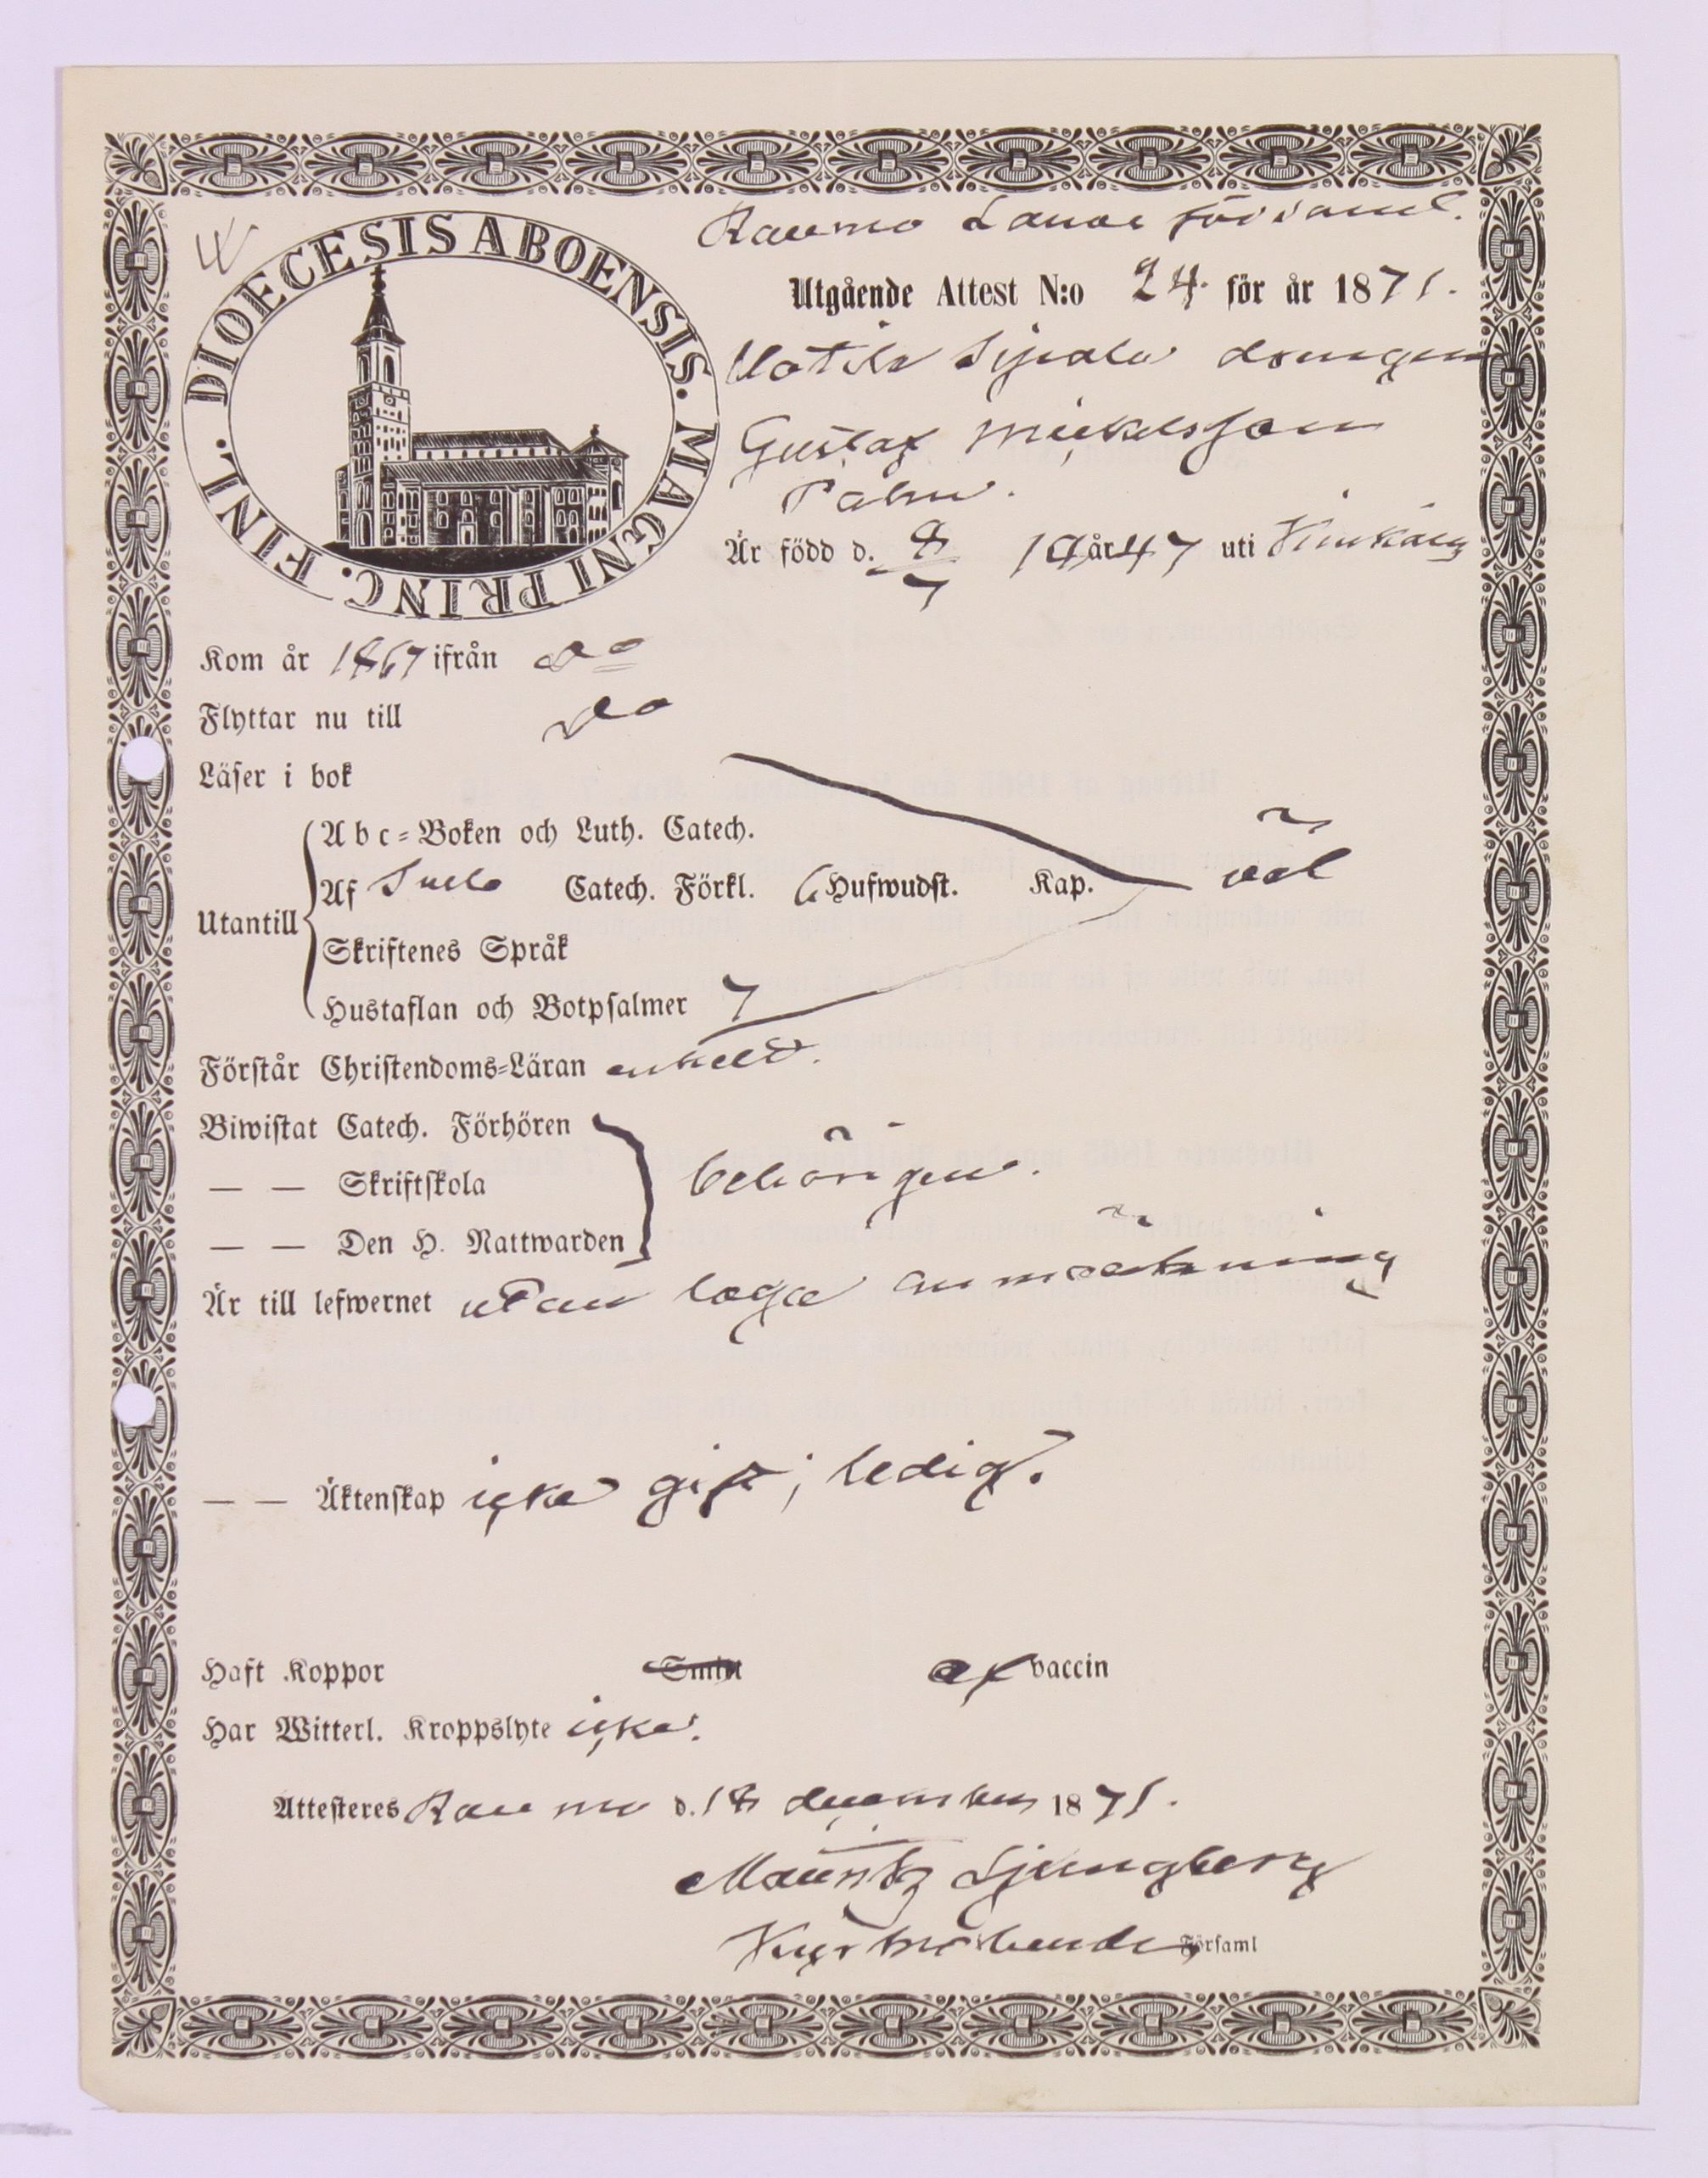 DIOECESIS ABOENSIS. MAGNI PRINC. FINL.
Raumo Lands församl.
Utgående Attest N:o 24. för år 1871.
drängen
Gustaf Mickelsson
Palm.
Är född d. 8/7 18 år 47 uti
Kom år 1867 ifrån do
Flyttar nu till do
Läser i bok
Abc-Boken och Luth. Catech.
Utantill
Af Svebe Catech. Förkl. 6 Hufwudst. Kap. väl
Skriftenes Språk
Hustaflan och Botpsalmer 7
Förstår Christendoms-Läran enkelt.
Biwistat Catech. Förhören
— — Skriftskola behörigen.
— — Den H. Nattwarden
Är till lefwernet utan laga anmärkning
— — Äktenskap icke gift; ledig.
Haft Koppor Smitt af vaccin
Har Witterl. Kroppslyte icke.
Attesteres Raumo d. 18 december 1871.
Mauritz Ljungberg
Församl